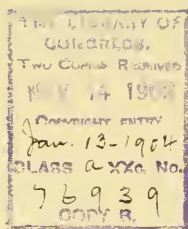 THE LIBRARY OF
CONGRESS.
TWO COPIES RECEIVED
14 190
COPYRIGHT ENTRY
Jan. 13-1904
CLASS a XXc. No.
76939
COPY B.